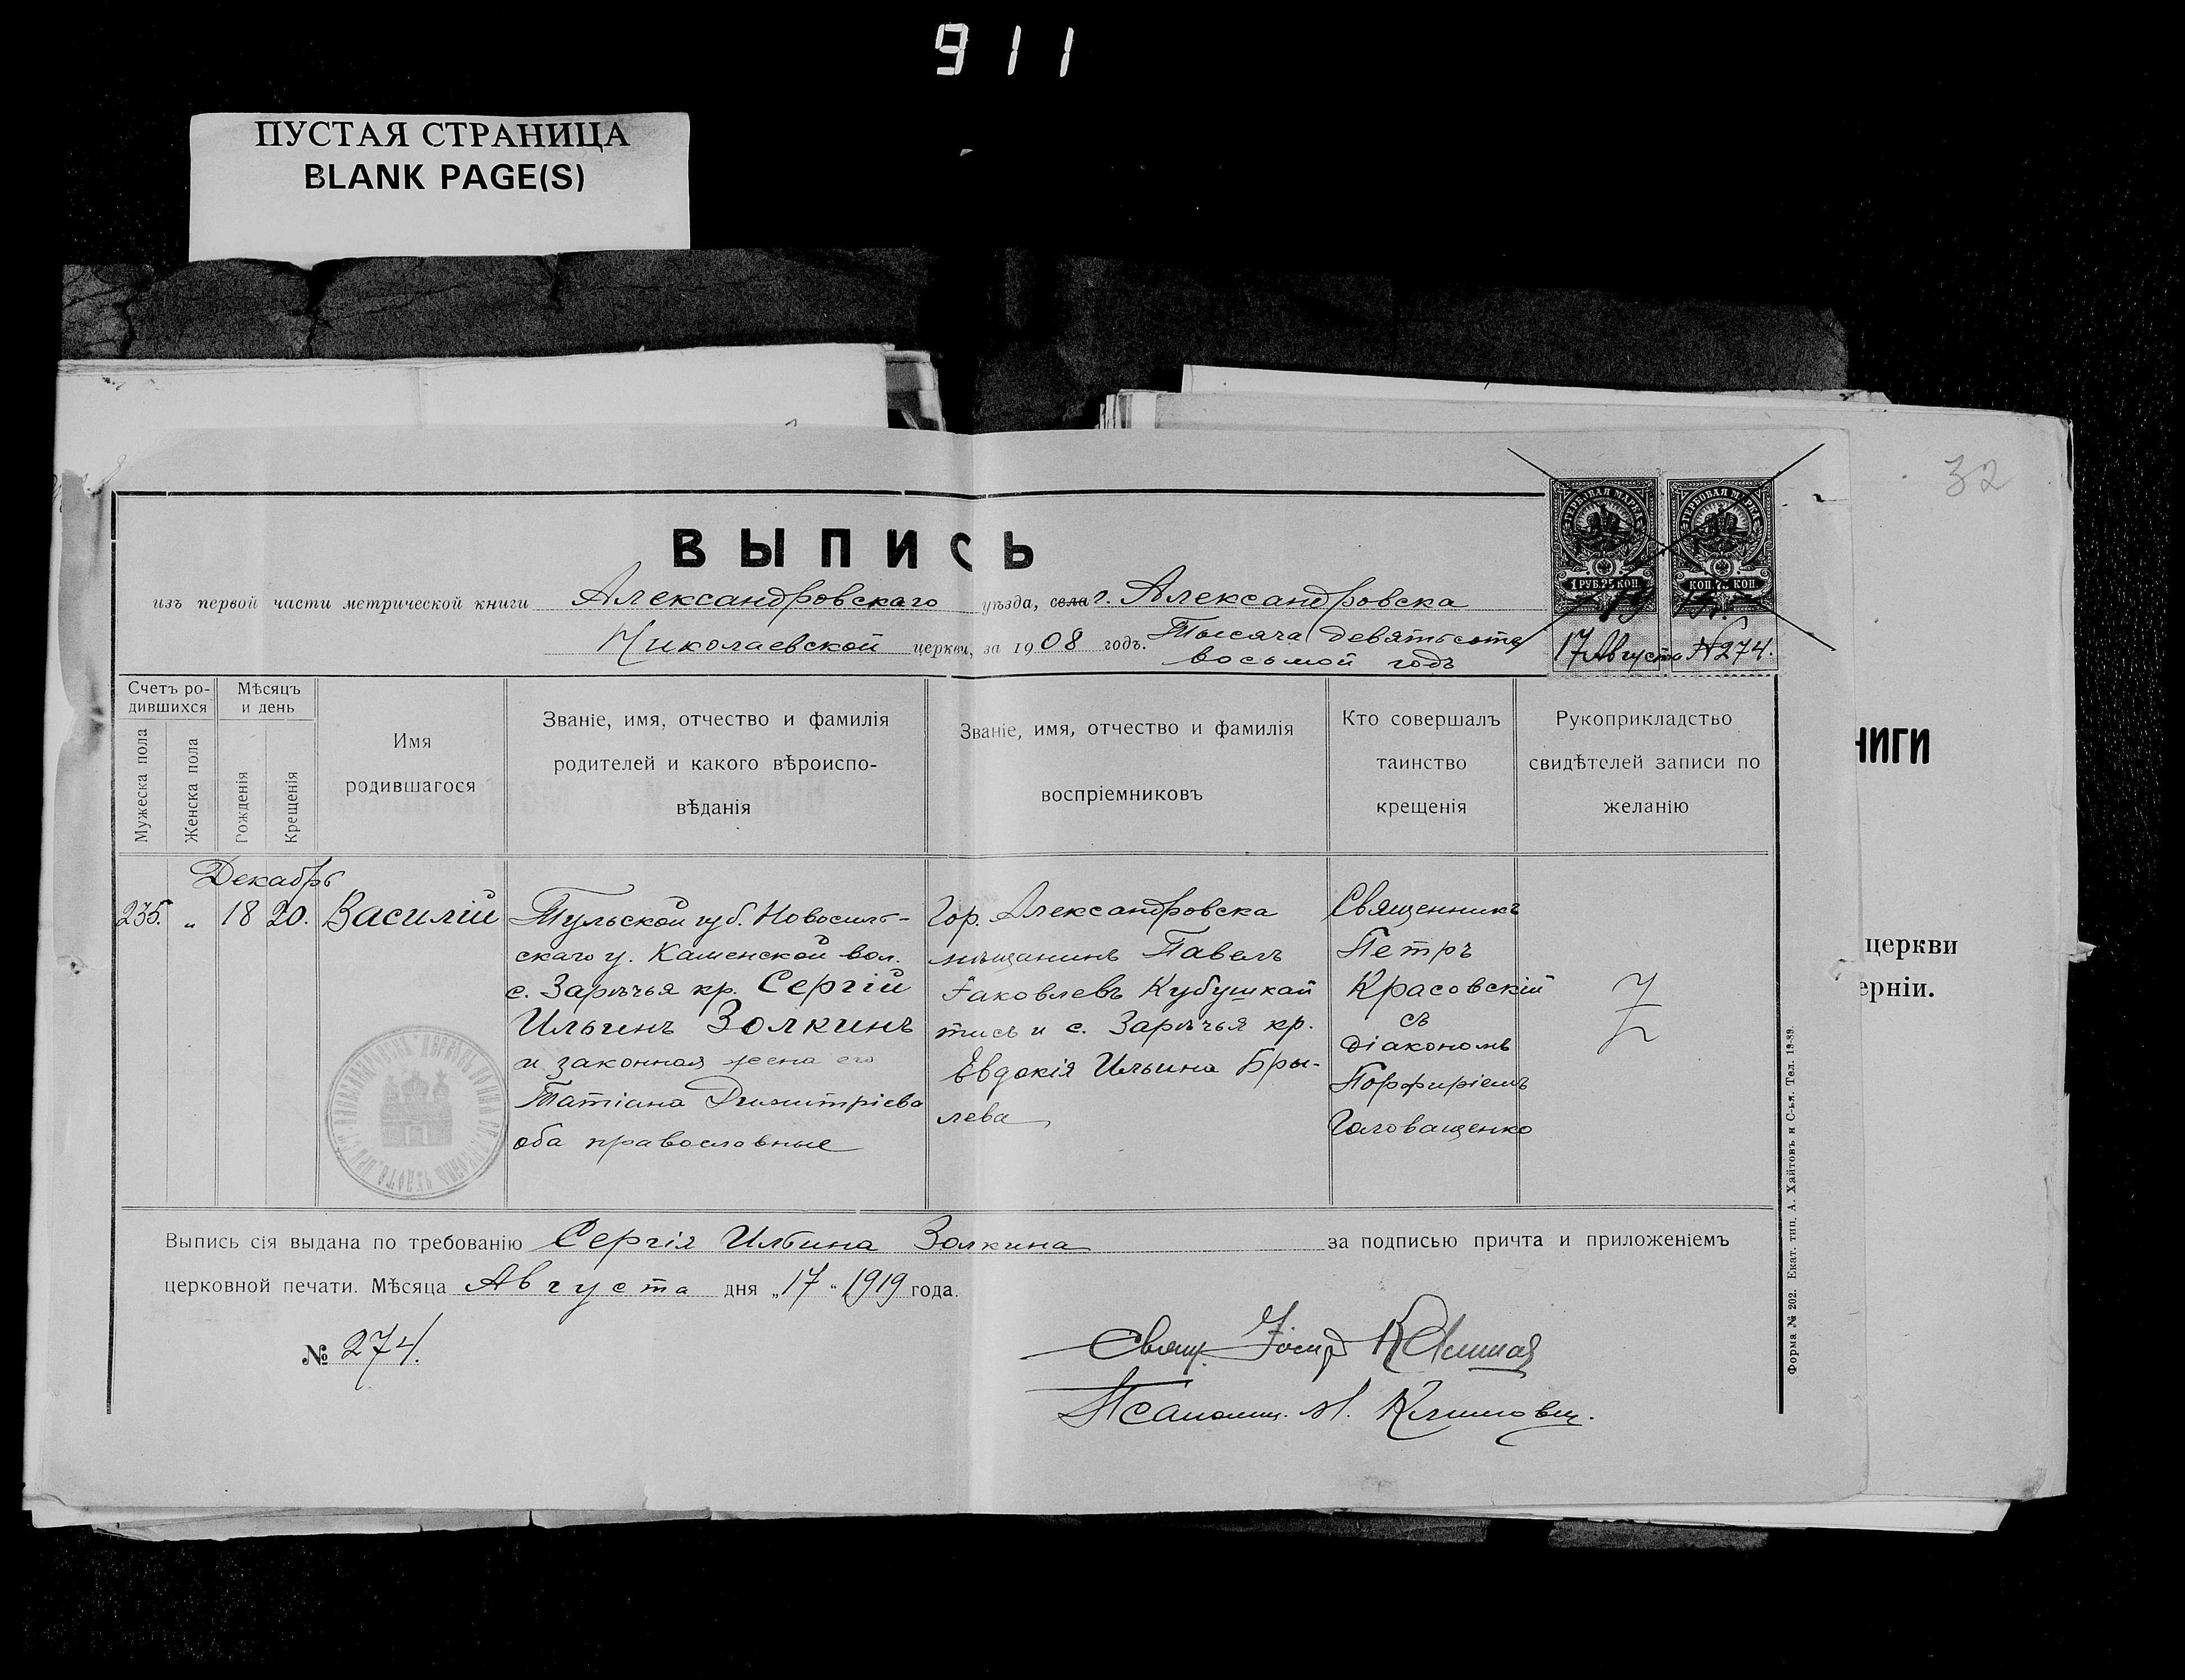 911
ПУСТАЯ СТРАНИЦА
BLANK PAGE(S)
32
ВЫПИСЬ
изъ первой части метрической книги Александровскаго уѣзда, села г. Александровска
Николаевской церкви, за 1908 годъ. Тысяча девятьсотъ
восьмой годъ
ГЕРБОВАЯ МАРКА
1 РУБ. 25 КОП.
ГЕРБОВАЯ МАРКА
КОП. 75 КОП.
17 Августа № 274.
Счетъ ро-
дившихся
Мужеска пола
Женска пола
Мѣсяцъ
и день
Рожденія
Крещенія
Имя
родившагося
Званіе, имя, отчество и фамилія
родителей и какого вѣроиспо-
вѣданія
Званіе, имя, отчество и фамилія
воспріемниковъ
Кто совершалъ
таинство
крещенія
Рукоприкладство
свидѣтелей записи по
желанію
Декабрь
235. „ 18 20. Василій
Тульской губ. Новосиль-
скаго у. Каменской вол.
с. Зарѣчья кр. Сергій
Ильинъ Золкинъ
и законная жена его
Татіана Димитріева
оба православные
Гор. Александровска
мѣщанинъ Павелъ
Іаковлевъ Кубушкай
тисъ и с. Зарѣчья кр.
Евдокія Ильина Бры-
лева
Священникъ
Петръ
Красовскій
съ
діакономъ
Порфиріемъ
Головащенко
Выпись сія выдана по требованію Сергія Ильина Золкина за подписью причта и приложеніемъ
церковной печати. Мѣсяца Августа дня „17“ 1919 года.
№ 274.
Свящ. Іосиф
Псаломщ. М. Климовъ.
Форма № 202. Екат. тип. А. Хайтовъ и С-ья. Тел. 13-89.
НИГИ
церкви
ерніи.